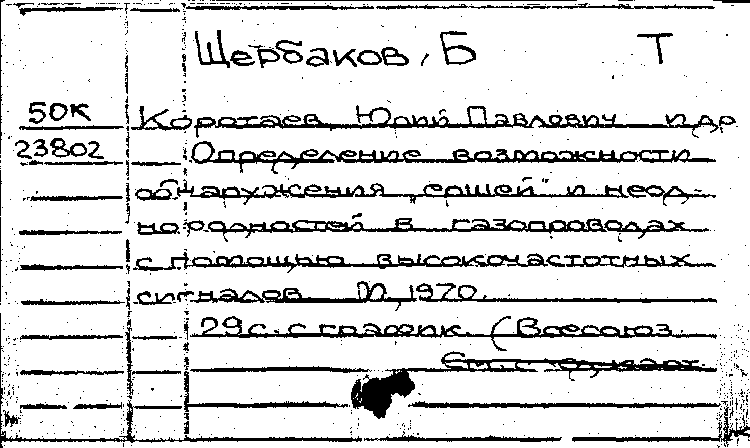 Щербаков, Б Т
50К Коротаев, Юрий Павлович и др
23802 Определение возможности
обнаружения „ершей" и неод-
нородностей в газопроводах
с помощью высокочастотных
сигналов. М, 1970.
29с. с график. (Всесоюз.
См. с